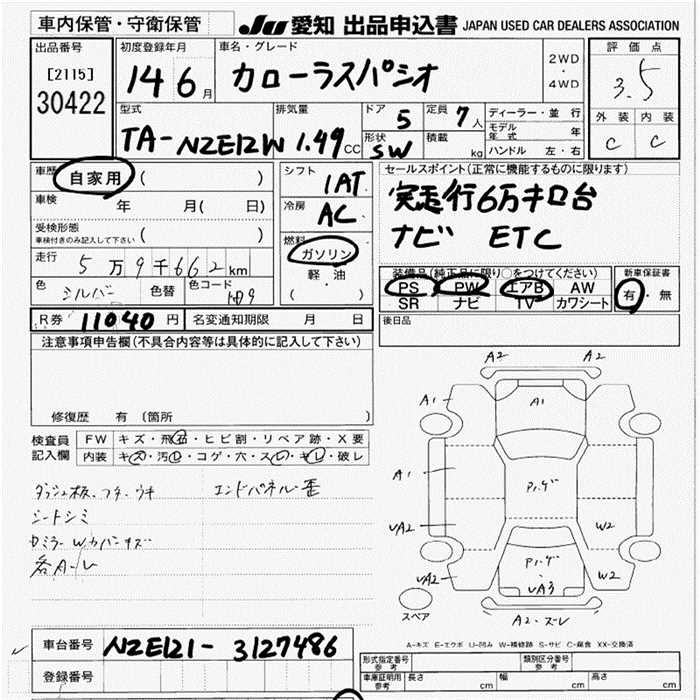 車内保管・守衛保管
JU 愛知 出品申込書 JAPAN USED CAR DEALERS ASSOCIATION
出品番号
[2115]
30422
初度登録年月
14 6月
車名・グレード
カローラスパシオ
2WD
・
4WD
評価点
3.5
外装 内装
C C
型式
TA-NZE121W
排気量
1.49 CC
ドア 5
定員 7人
形状 SW
積載 kg
ディーラー・並行
モデル年式 年
ハンドル 左・右
車歴 自家用 ( )
車検 年 月( 日)
受検形態
車検付きのみ記入して下さい ( )
走行 5万9千662km
色 シルバー 色替 色コード 1D9
シフト 1AT
冷房 AC
燃料
ガソリン
軽・油
( )
セールスポイント(正常に機能するものに限ります)
実走行6万キロ台
ナビ ETC
装備品(純正品に限り○をつけてください)
PS PW エアB AW
SR ナビ TV カワシート
新車保証書
有・無
R券 11040円 名変通知期限 月 日
後日品
注意事項申告欄(不具合内容等は具体的に記入して下さい)
修復歴 有(箇所 )
検査員記入欄
FW キズ・飛石・ヒビ割・リペア跡・X要
内装 キズ・汚レ・コゲ・穴・スレ・キレ・破レ
ダッシュ板、フタ、ウキ
エンドパネル歪
シートシミ
A2 A2
A1 A1
A1 Pルーゲ
UA2 W2
UA2 W2
UA3
A2・ズレ
スペア
A-キズ E-エクボ U-凹み W-補修跡 S-サビ C-腐食 XX-交換済
車台番号 NZE121-3127486
登録番号
形式指定番号 参考
類別区分番号 参考
車庫証明用 参考 長さ cm 幅 cm 高さ cm